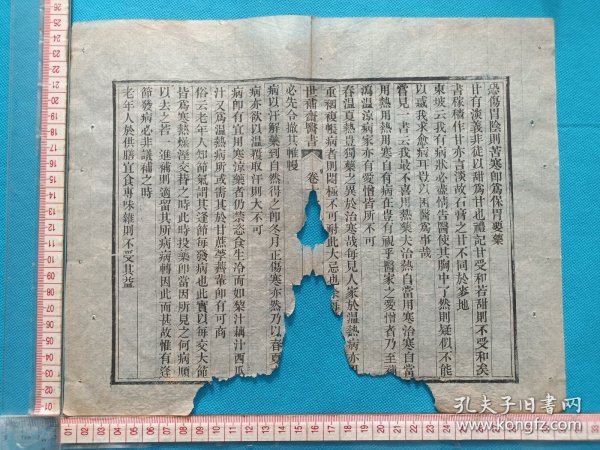 恐傷胃陰則苦寒卽爲保胃要藥
甘有淡義非徒以甜爲甘也禮記甘受和若甜則不受和矣
書稼穡作甘亦言淡故石膏之甘不同於麥地
東坡云我有病狀必盡情告醫使其胸中了然則疑似不能
以惑我求愈病耳豈以困醫爲事哉
嘗見一書云我最不喜用熱藥夫治熱自當用寒治寒自當
用熱用熱用寒自有病在豈有視乎醫家之愛憎者乃至
瀉溫涼病家亦有愛憎皆所不可
春溫夏熱豈獨藥之異於治寒哉每見人家於溫熱病亦
重裀複帳病者則悶極不可耐此大忌也
世補齋醫書 卷十
必先令撤其帷幔
病以汗解藥到自然得之卽冬月正傷寒亦然乃以春夏
病亦欲以溫覆取汗則大不可
病卽有宜用寒涼藥者仍禁恣食生冷而如梨汁藕汁西瓜
汁又爲溫熱病所或需其於甘蔗荸薺葷卽有可商
俗云老年人知節氣謂其逢節每發病也此實以每交大節
皆爲寒熱燥溼交替之時此時投藥卽當因所見之何病順
以去之若一進補劑則適留其所病病轉因此而甚故惟有逢
節發病必非議補之時
老年人於供膳宜食專味雜則不受其益
孔夫子旧书网